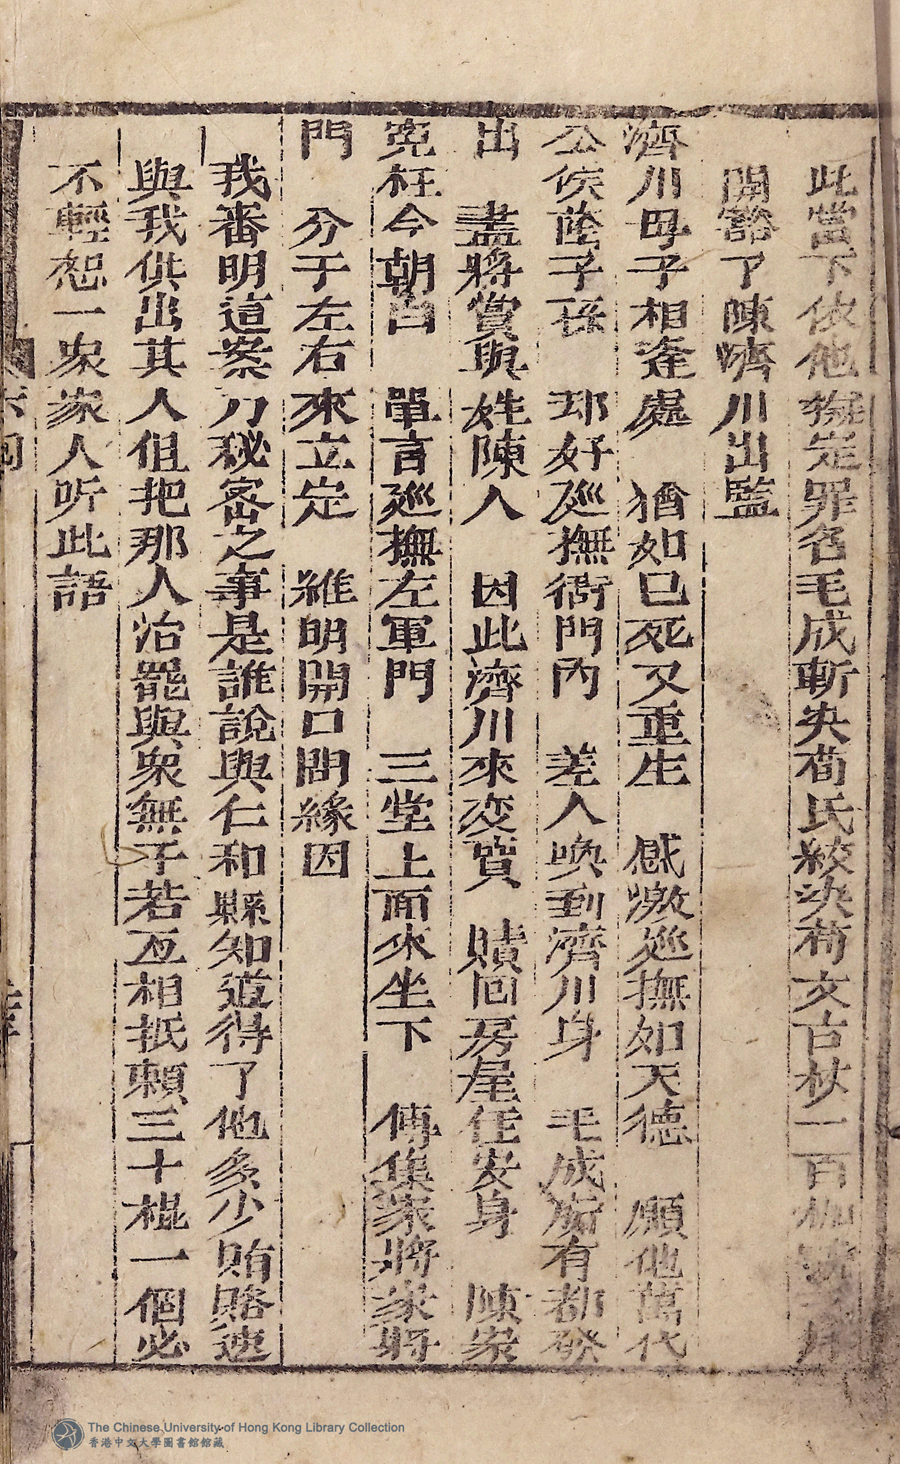 此當下依他擬定罪名毛成斬決荀氏絞決荀文古杖一百枷號三月
開豁了陳濟川出監
濟川母子相逢處　猶如已死又重生　感激廵撫如天德　願他萬代
公侯蔭子孫　耶好廵撫衙門內　差人喚到濟川身　毛成所有都發
出　盡將賞與姓陳人　因此濟川來变賣　贖回房屋住安身　陳家
寃枉今朝白　單言廵撫左軍門　三堂上面來坐下　傳集家將家將
門　分于左右來立定　維明開口問緣因
我審明這案乃秘密之事是誰說與仁和縣知道得了他多少賄賂速
與我供出其人但把那人治罷與衆無干若互相抵賴三十棍一個必
不輕恕一衆家人听此語
The Chinese University of Hong Kong Library Collection
香港中文大學圖書館館藏